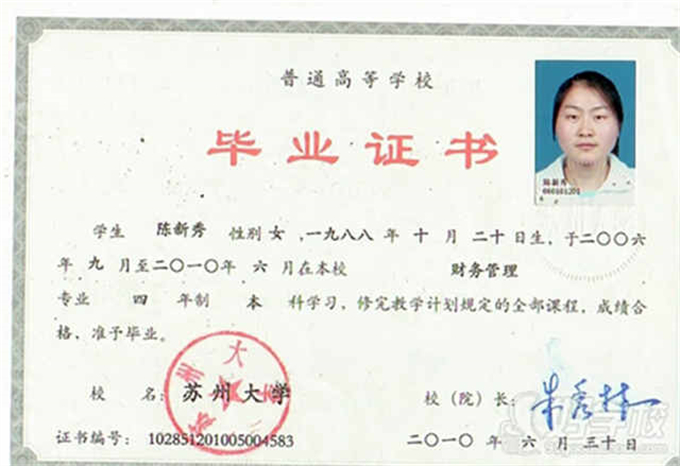 普通高等学校
毕业证书
陈新秀
学生 陈新秀 性别 女 ,一九八八 年 十 月 二十 日生, 于二〇〇六
年 九 月至二〇一〇年 六 月在本校 财务管理
专业 四 年制 本 科学习, 修完教学计划规定的全部课程, 成绩合
格, 准予毕业。
校 名: 苏州大学
校(院)长:
证书编号: 102851201005004583
二〇一〇 年 六 月 三十 日